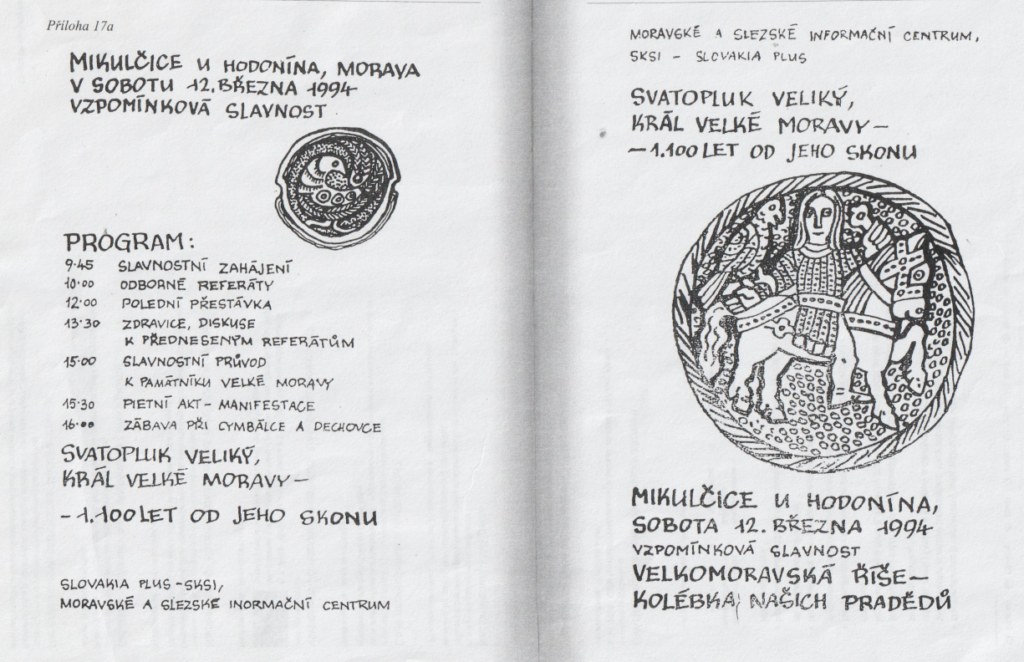 Příloha 17a
MIKULČICE U HODONÍNA, MORAVA
V SOBOTU 12. BŘEZNA 1994
VZPOMÍNKOVÁ SLAVNOST
PROGRAM:
9·45 SLAVNOSTNÍ ZAHÁJENÍ
10·00 ODBORNÉ REFERÁTY
12·00 POLEDNÍ PŘESTÁVKA
13·30 ZDRAVICE, DISKUSE
K PŘEDNESENÝM REFERÁTŮM
15·00 SLAVNOSTNÍ PRŮVOD
K PAMÁTNÍKU VELKÉ MORAVY
15·30 PIETNÍ AKT - MANIFESTACE
16·00 ZÁBAVA PŘI CYMBÁLCE A DECHOVCE
SVATOPLUK VELIKÝ,
KRÁL VELKÉ MORAVY —
- 1.100 LET OD JEHO SKONU
SLOVAKIA PLUS - SKSI,
MORAVSKÉ A SLEZSKÉ INORMAČNÍ CENTRUM
MORAVSKÉ A SLEZSKÉ INFORMAČNÍ CENTRUM,
SKSI - SLOVAKIA PLUS
SVATOPLUK VELIKÝ,
KRÁL VELKÉ MORAVY —
— 1.100 LET OD JEHO SKONU
MIKULČICE U HODONÍNA,
SOBOTA 12. BŘEZNA 1994
VZPOMÍNKOVÁ SLAVNOST
VELKOMORAVSKÁ ŘÍŠE —
KOLÉBKA NAŠICH PRADĚDŮ